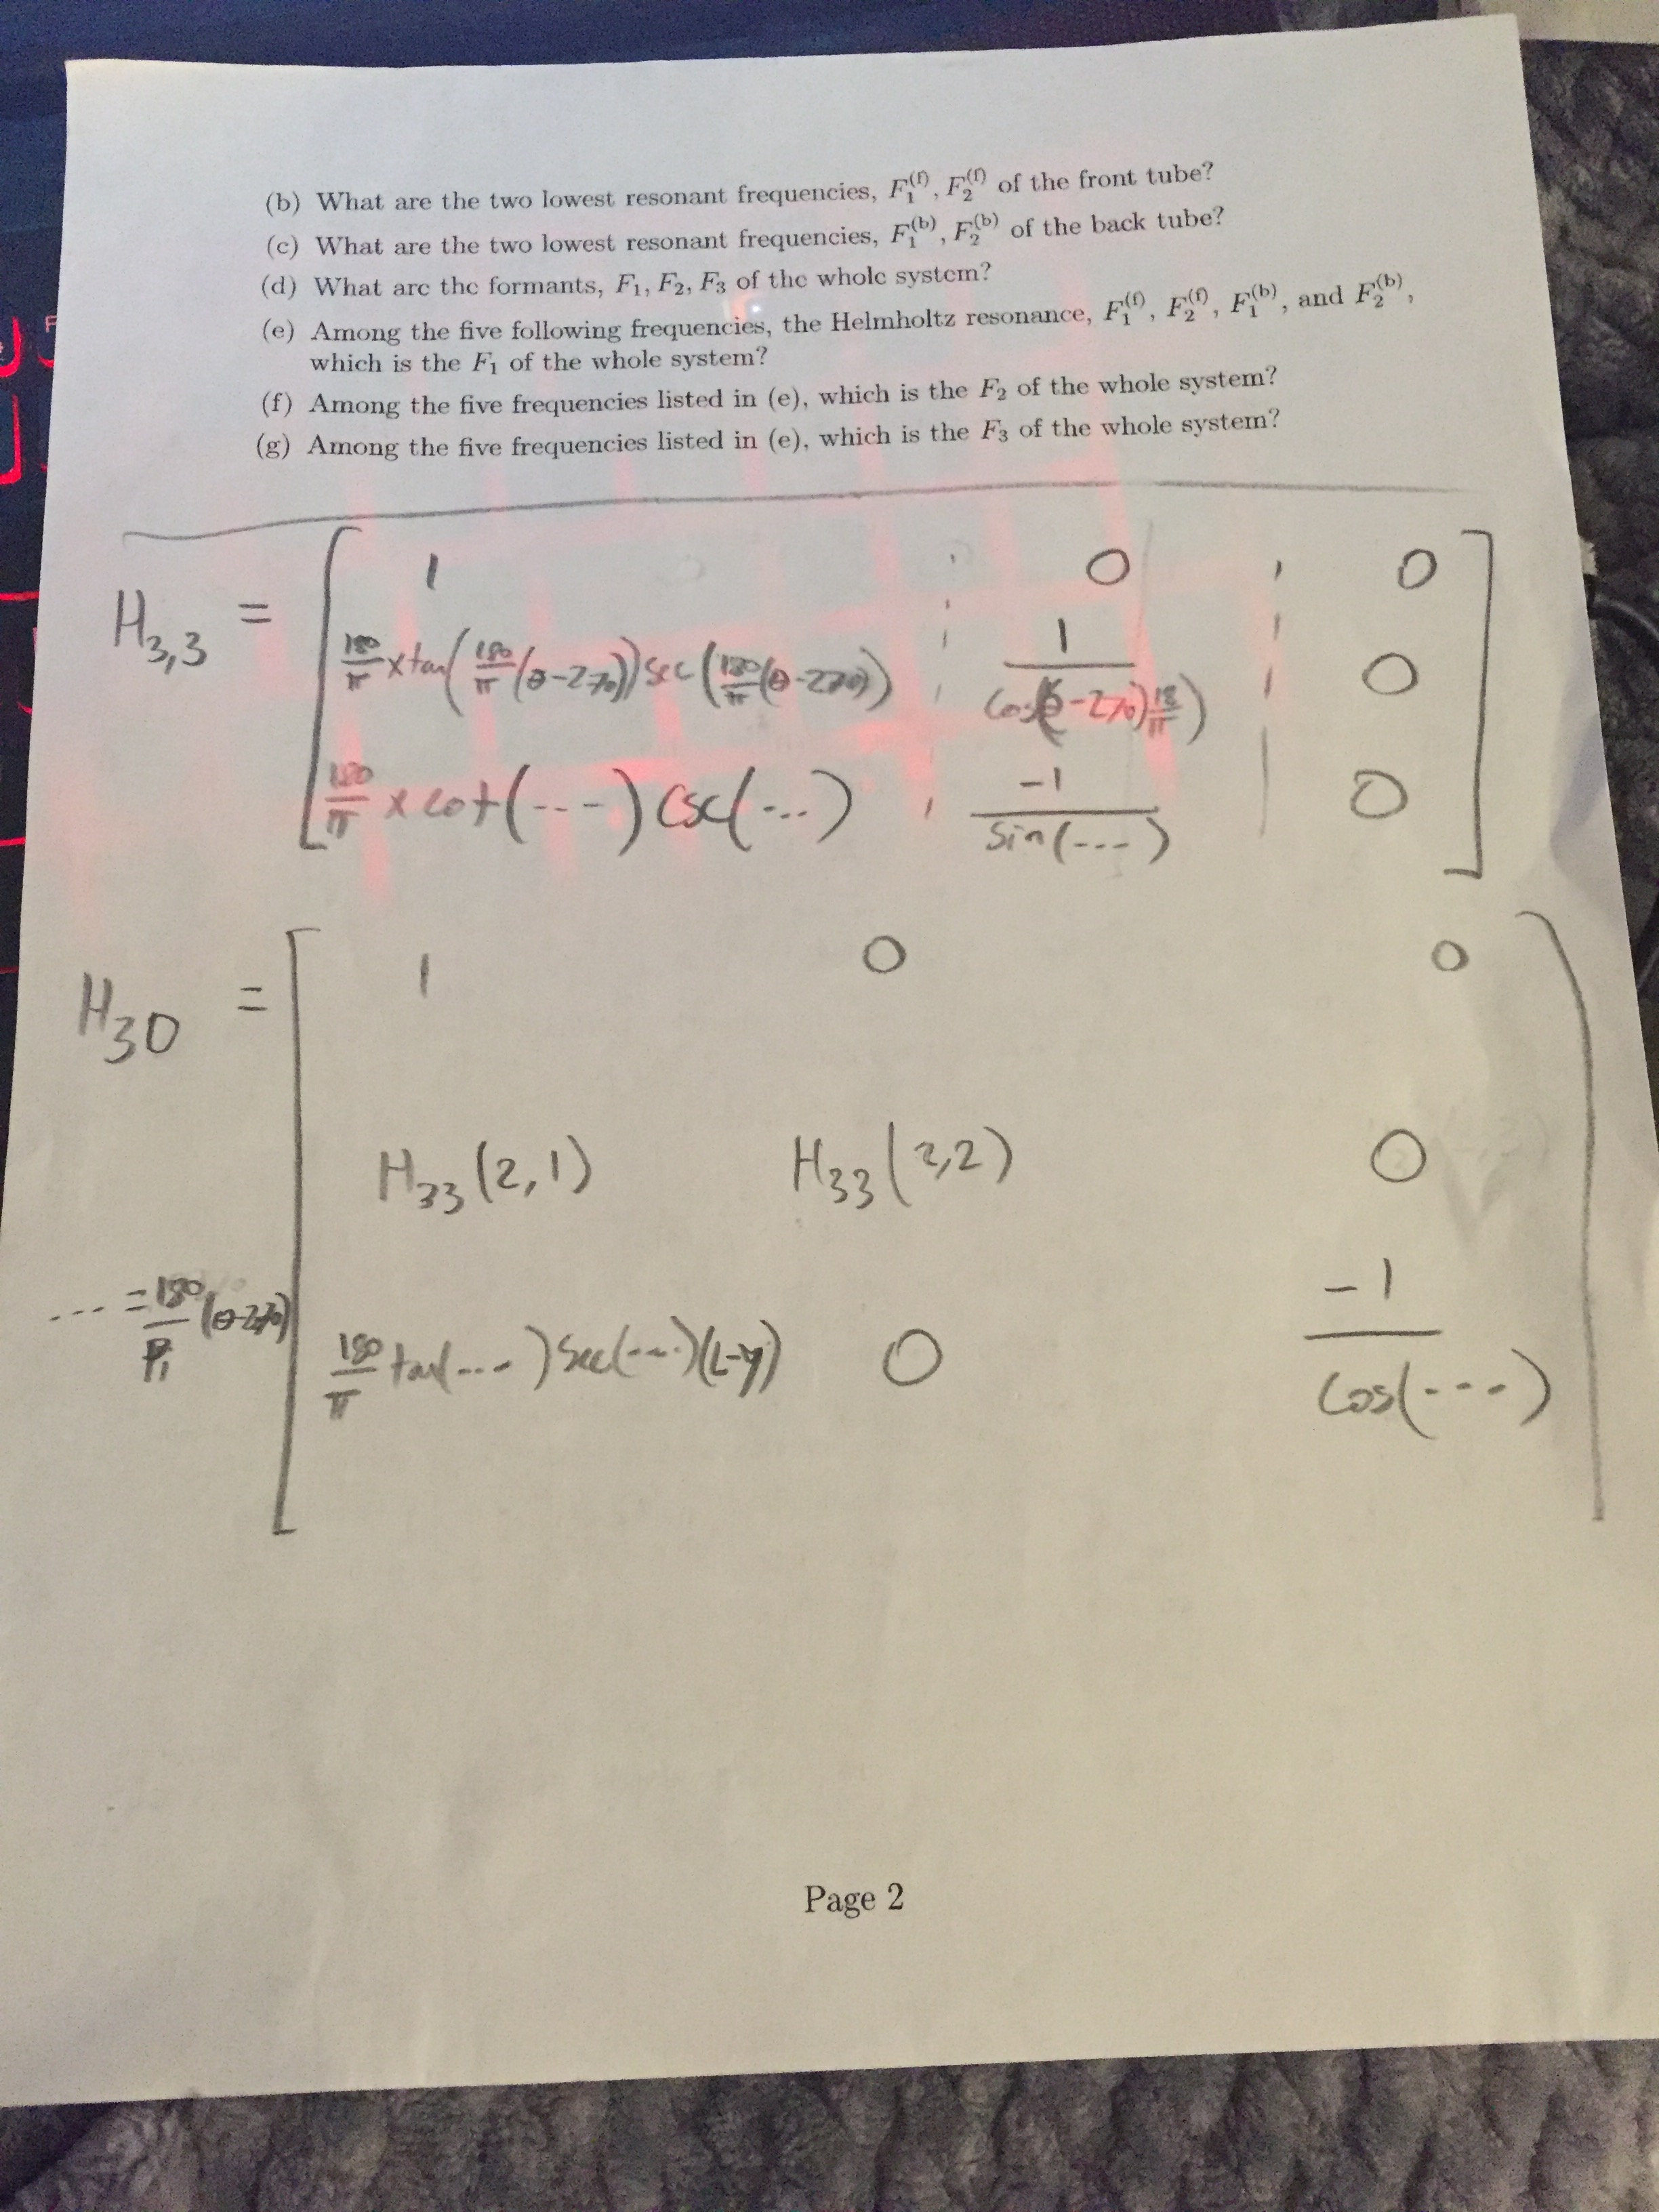 (b) What are the two lowest resonant frequencies, F₁⁽ᶠ⁾, F₂⁽ᶠ⁾ of the front tube?
(c) What are the two lowest resonant frequencies, F₁⁽ᵇ⁾, F₂⁽ᵇ⁾ of the back tube?
(d) What are the formants, F₁, F₂, F₃ of the whole system?
(e) Among the five following frequencies, the Helmholtz resonance, F₁⁽ᶠ⁾, F₂⁽ᶠ⁾, F₁⁽ᵇ⁾, and F₂⁽ᵇ⁾,
which is the F₁ of the whole system?
(f) Among the five frequencies listed in (e), which is the F₂ of the whole system?
(g) Among the five frequencies listed in (e), which is the F₃ of the whole system?
H₃,₃ = [ 1 ; 0 ; 0
180/π × tan(180/π (θ-270)) sec(180/π (θ-270)) ; 1/cos((θ-270) 18/π) ; 0
180/π × cot(---) csc(...) ; -1/sin(---) ; 0 ]
H₃₀ = [ 1 0 0
H₃₃(2,1) H₃₃(2,2) 0
--- = 180/Pi (θ-270)
180/π tan(---) sec(---)(L-y) 0 -1/cos(---) ]
Page 2